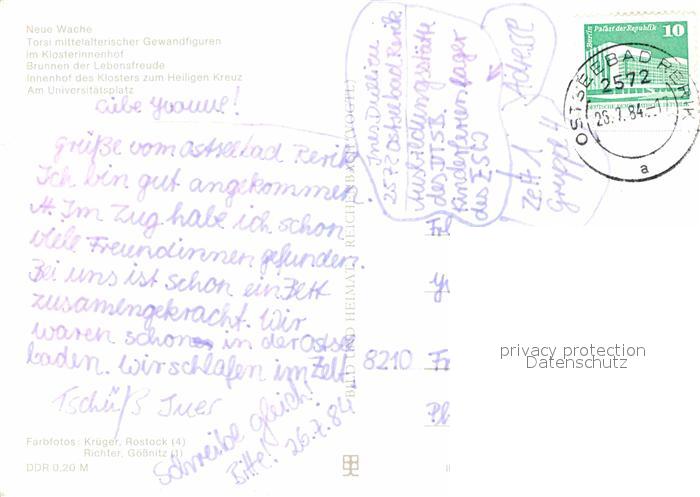 Neue Wache
Torsi mittelalterischer Gewandfiguren
im Klosterinnenhof
Brunnen der Lebensfreude
Innenhof des Klosters zum Heiligen Kreuz
Am Universitätsplatz
Liebe Yvonne!
Grüße vom Ostseebad Rerik
Ich bin gut angekommen
Im Zug habe ich schon
viele Freundinnen gefunden.
Bei uns ist schon ein Zelt
zusammengekracht. Wir
waren schon in der Ostsee
baden. Wir schlafen im Zelt
Tschüß
Schreibe gleich!
Bitte! 26.7.84
Farbfotos: Krüger, Rostock (4)
Richter, Gößnitz (1)
DDR 0,20 M
BILD UND HEIMAT REICHENBACH (VOGTL)
2572 Ostseebad Rerik
Ausbildungsstätte
des DTSB
Kinderferienlager
des ESW
Zelt 1
Gruppe 4
Adresse
8210
Berlin Palast der Republik
10
OSTSEEBAD RERIK
2572
26.7.84
a
privacy protection
Datenschutz